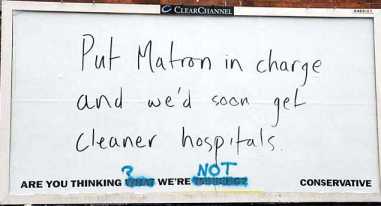 CLEARCHANNEL
Put Matron in charge
and we'd soon get
cleaner hospitals.
? NOT
ARE YOU THINKING WHAT WE'RE THINKING? CONSERVATIVE